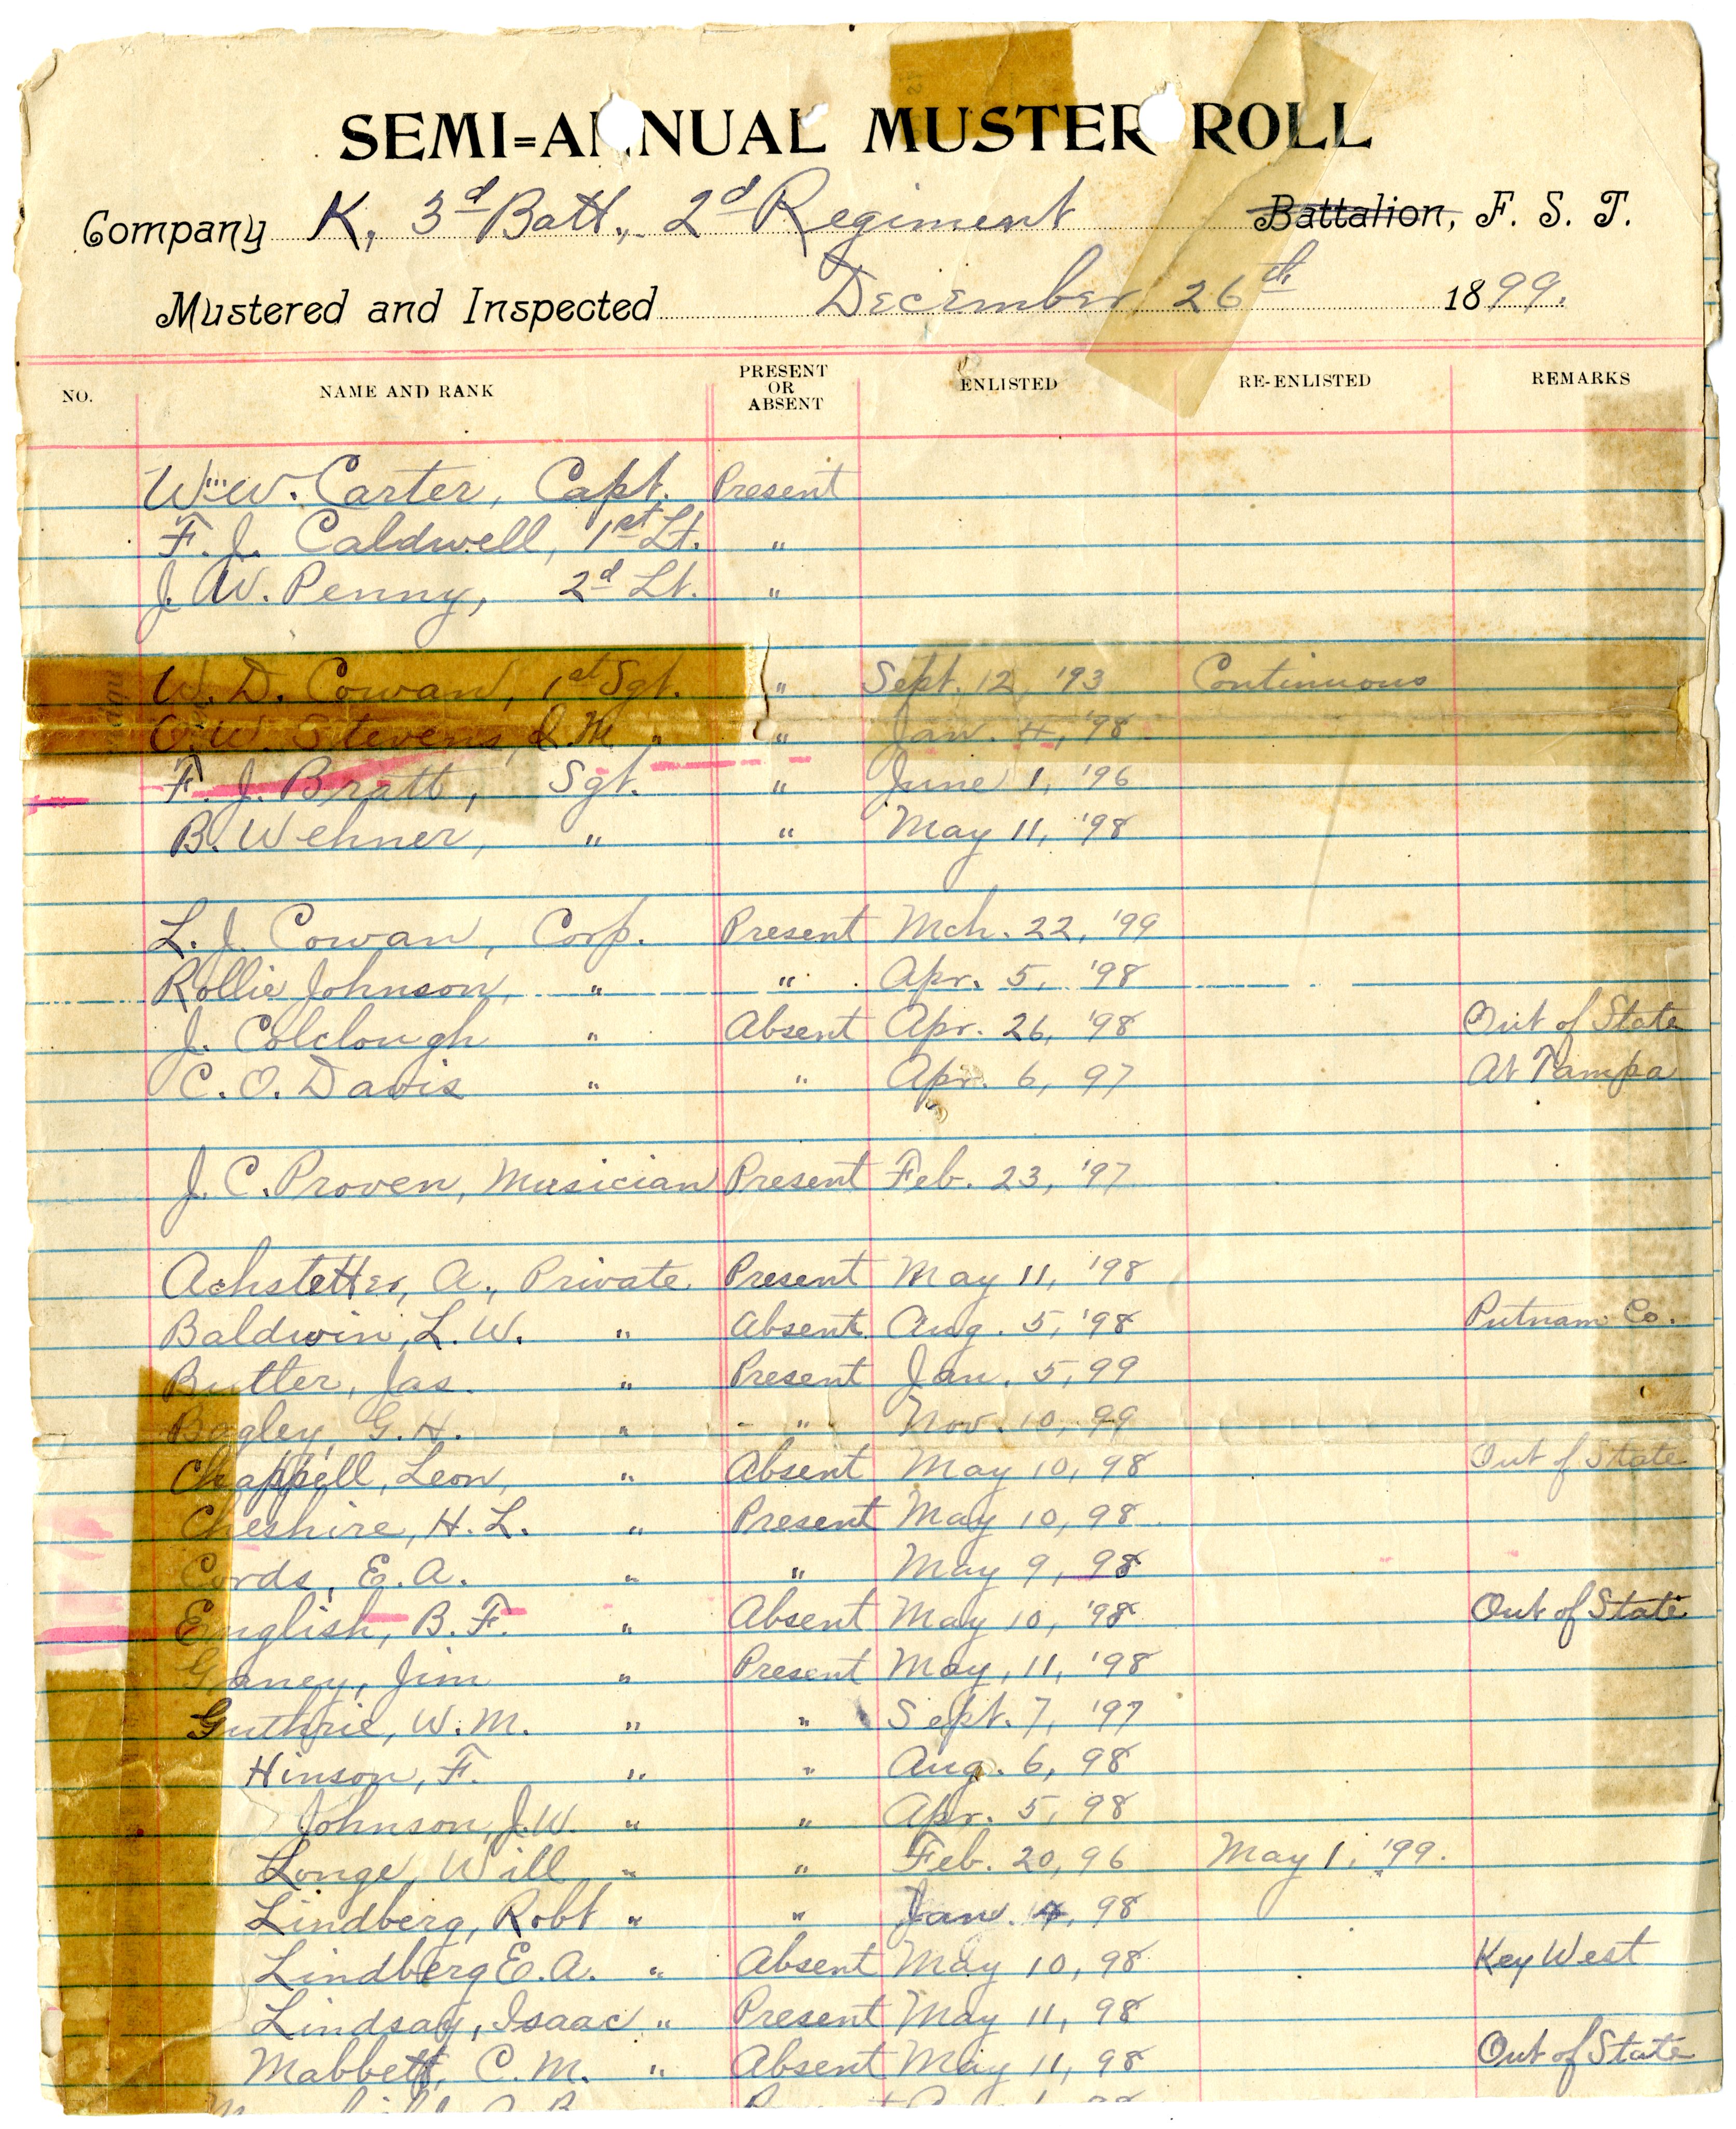 SEMI=ANNUAL MUSTER ROLL
Company K, 3d Batt., 2d Regiment Battalion, F. S. T.
Mustered and Inspected December 26th 1899.
NO. NAME AND RANK PRESENT OR ABSENT ENLISTED RE-ENLISTED REMARKS
Wm. W. Carter, Capt. Present
F. J. Caldwell, 1st Lt. "
J. W. Penny, 2d Lt. "
W. D. Cowan, 1st Sgt. " Sept. 12, '93 Continuous
O. W. Stevens, Q.M. " " Jan. 4, '98
F. J. Bratt, Sgt. " June 1, '96
B. Wehner, " " May 11, '98
L. J. Cowan, Corp. Present Mch. 22, '99
Rollie Johnson, " " Apr. 5, '98
J. Colclough " Absent Apr. 26, '98 Out of State
C. O. Davis " " Apr. 6, 97 At Tampa
J. C. Proven, Musician Present Feb. 23, '97
Achstetter, A., Private Present May 11, '98
Baldwin, L. W. " Absent Aug. 5, '98 Putnam Co.
Butler, Jas. " Present Jan. 5, 99
Bagley, G. H. " " Nov. 10, 99
Chappell, Leon, " Absent May 10, 98 Out of State
Cheshire, H. L. " Present May 10, 98
Cords, E. A. " " May 9, 98
English, B. F. " Absent May 10, '98 Out of State
Ganey, Jim " Present May, 11, '98
Guthrie, W. M. " " Sept. 7, '97
Hinson, F. " " Aug. 6, 98
Johnson, J. W. " " Apr. 5, 98
Longe, Will " " Feb. 20, 96 May 1, '99.
Lindberg, Robt " " Jan. 4, 98
Lindberg E. A. " Absent May 10, 98 Key West
Lindsay, Isaac " Present May 11, 98
Mabbett, C. M. " Absent May 11, 98 Out of State